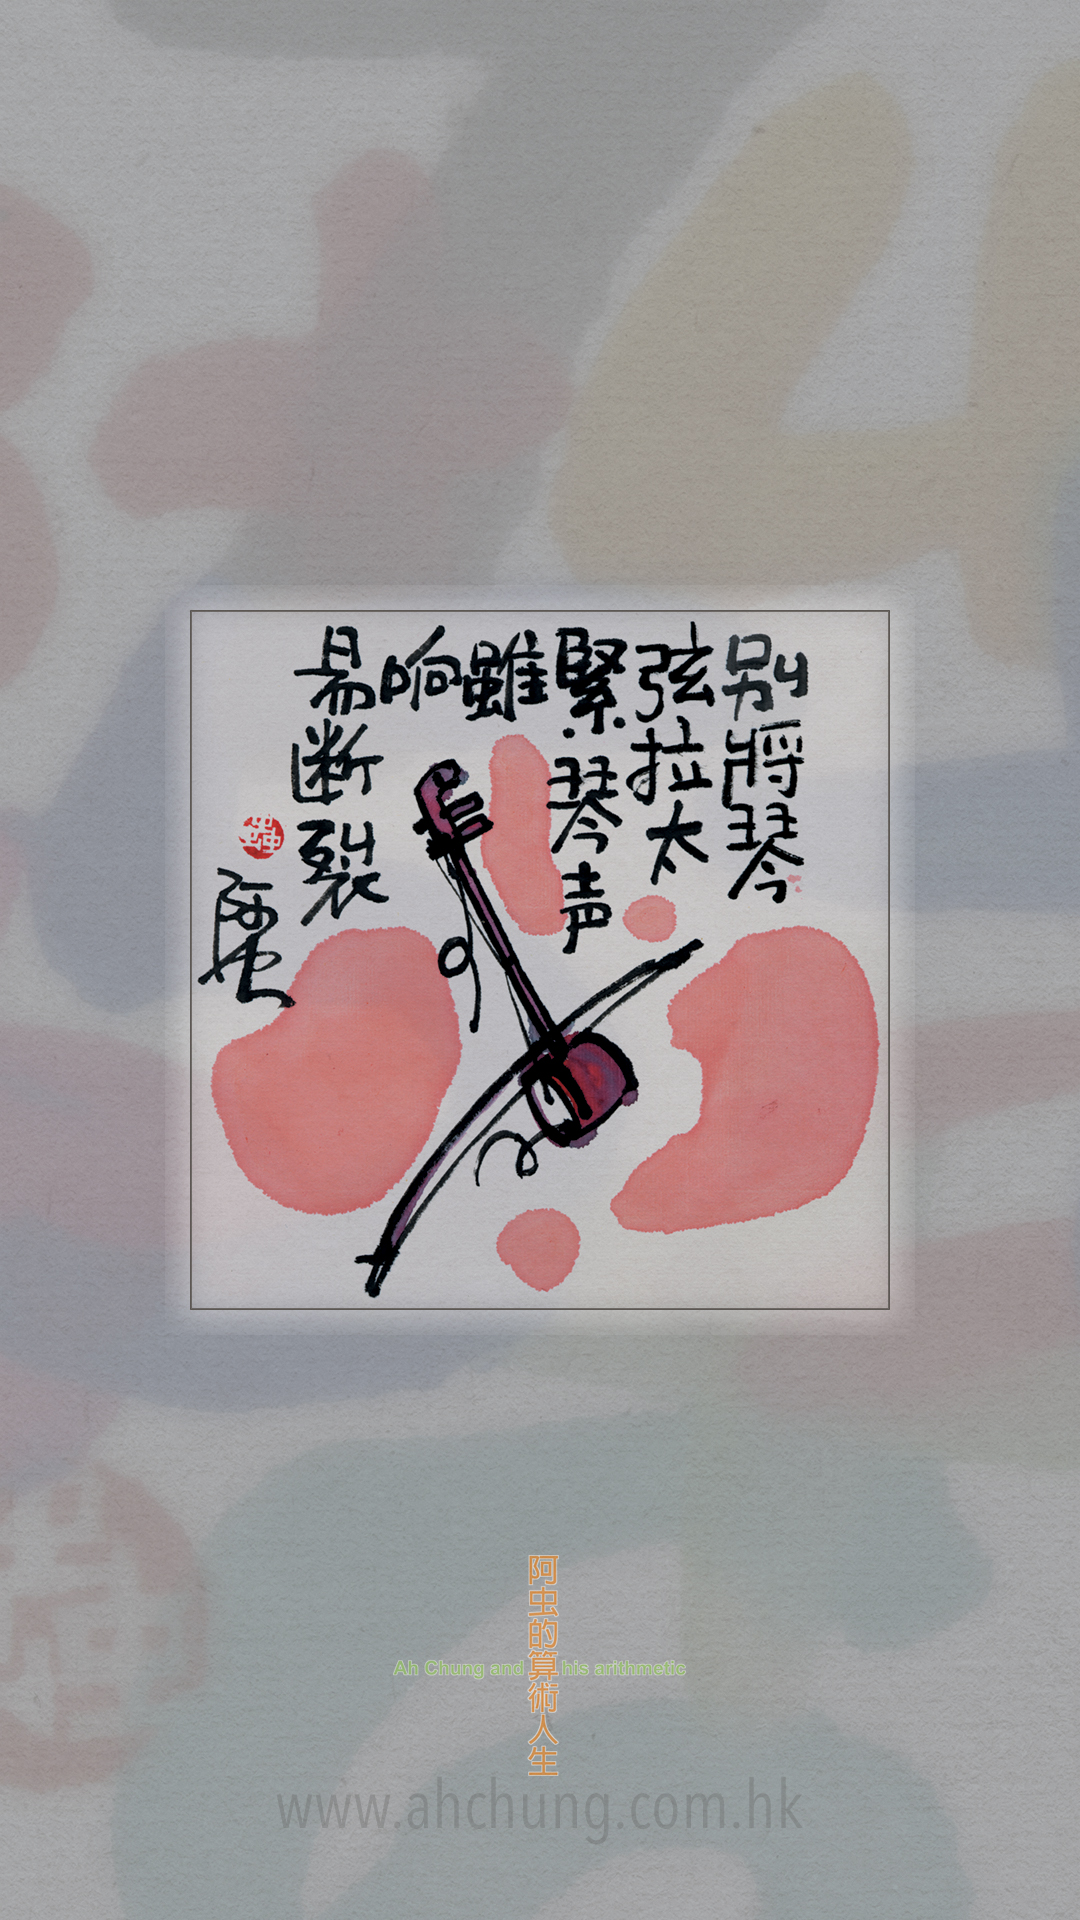 别將琴
弦拉太
緊.琴声
雖
响
易断裂
阿虫
蟲
阿虫的算術人生
Ah Chung and his arithmetic
www.ahchung.com.hk